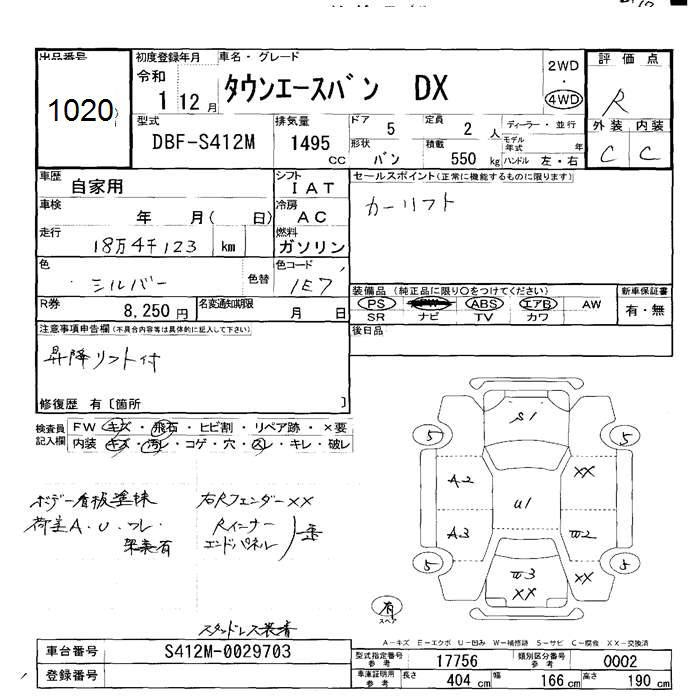 出品番号 1020
初度登録年月 令和 1 12月
車名・グレード タウンエースバン DX
2WD ・ 4WD
評価点 R
外装 C 内装 C
型式 DBF-S412M
排気量 1495 CC
ドア 5 定員 2 人
形状 バン 積載 550 kg
ディーラー・並行
モデル年式 年
ハンドル 左・右
車歴 自家用
シフト IAT
セールスポイント(正常に機能するものに限ります)
カーリフト
車検 年 月( 日)
冷房 AC
走行 18万4千123 km
燃料 ガソリン
色 シルバー 色替
色コード 1E7
装備品 (純正品に限り〇をつけてください)
PS ABS エアB AW
SR ナビ TV カワ
新車保証書 有・無
R券 8,250円 名変通知期限 月 日
後日品
注意事項申告欄(不具合内容等は具体的に記入して下さい)
昇降リフト付
修復歴 有〔箇所 〕
検査員記入欄 FW・キズ・飛石・ヒビ割・リペア跡・×要
内装・キズ・汚レ・コゲ・穴・スレ・キレ・破レ
ボデー看板塗抹
荷室A.U.フレ
架装有
右Rフェンダー××
Rインナー
エンドパネル
スタッドレス装着
S1
5 5
A2 ××
U1
A3 W2
5 W3 ×× ×× 5
有 スペア
A-キズ E-エクボ U-凹み W-補修跡 S-サビ C-腐食 XX-交換済
車台番号 S412M-0029703
型式指定番号 参考 17756 類別区分番号 参考 0002
登録番号
車庫証明用 参考 長さ 404 cm 幅 166 cm 高さ 190 cm